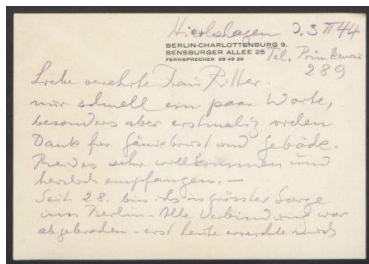 Hierlshagen 0.3 II 44
BERLIN-CHARLOTTENBURG 9.
SENSBURGER ALLEE 25
FERNSPRECHER 98 49 28
Tel. Primkenau
289
Liebe verehrte Frau Ritter.
nur schnell ein paar Worte,
besonders aber erstmalig vielen
Dank für Gänsebrust und Gebäck.
Beides sehr willkommen und
herzlich empfangen. —
Seit 28. bin ich in grösster Sorge
um Berlin. Alle Verbindung war
abgebrochen - erst heute erreichte mich